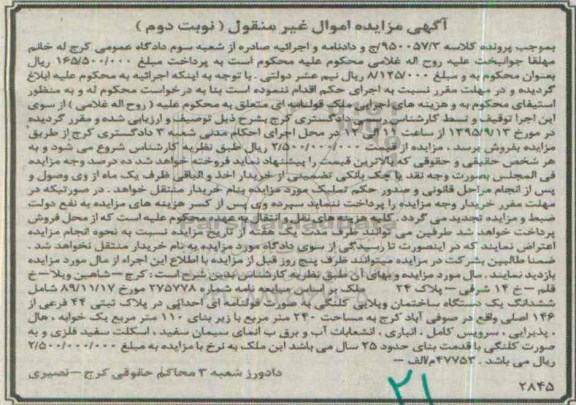 آگهی مزایده اموال غیر منقول ( نوبت دوم )
بموجب پرونده کلاسه ۹۵۰۰۵۷/۳/ج و دادنامه و اجرائیه صادره از شعبه سوم دادگاه عمومی کرج له خانم
مهلقا جوانبخت علیه روح اله غلامی محکوم علیه محکوم است به پرداخت مبلغ ۱۶۵/۵۰۰/۰۰۰ ریال
بعنوان محکوم به و مبلغ ۸/۱۲۵/۰۰۰ ریال نیم عشر دولتی . با توجه به اینکه اجرائیه به محکوم علیه ابلاغ
گردیده و در مهلت مقرر نسبت به اجرای حکم اقدام ننموده است بنا به درخواست محکوم له و به منظور
استیفای محکوم به و هزینه های اجرایی ملک قولنامه ای متعلق به محکوم علیه ( روح اله غلامی ) از سوی
این اجرا توقیف و توسط کارشناس رسمی دادگستری کرج بشرح ذیل توصیف و ارزیابی شده و مقرر گردیده
در مورخ ۱۳۹۵/۹/۱۳ از ساعت ۱۱ الی ۱۲ در محل اجرای احکام مدنی شعبه ۳ دادگستری کرج از طریق
مزایده بفروش برسد . مزایده از قیمت ۲/۵۰۰/۰۰۰/۰۰۰ ریال طبق نظریه کارشناس شروع می شود و به
هر شخص حقیقی و حقوقی که بالاترین قیمت را پیشنهاد نماید فروخته خواهد شد ده درصد وجه مزایده
فی المجلس بصورت وجه نقد یا چک بانکی تضمینی از خریدار اخذ و الباقی ظرف یک ماه از وی وصول و
پس از انجام مراحل قانونی و صدور حکم تملیک مورد مزایده بنام خریدار منتقل خواهد . در صورتیکه در
مهلت مقرر خریدار وجه مزایده را پرداخت ننماید سپرده وی پس از کسر هزینه های مزایده به نفع دولت
ضبط و مزایده تجدید می گردد . کلیه هزینه های نقل و انتقال به عهده محکوم علیه است که از محل فروش
پرداخت خواهد شد طرفین می توانند ظرف یک هفته از تاریخ مزایده نسبت به نحوه انجام مزایده
اعتراض نمایند که در اینصورت تا رسیدگی از سوی دادگاه مورد مزایده به نام خریدار منتقل نخواهد شد .
ضمنا طالبین بشرکت در مزایده میتوانند ظرف پنج روز قبل از مزایده با اطلاع این اجراء از مال مورد مزایده
بازدید نمایند . مال مورد مزایده و بهای آن طبق نظریه کارشناس بدین شرح است : کرج – شاهین ویلا – خ
قلم – خ ۱۴ شرقی – پلاک ۲۴ ملک بر اساس مبایعه نامه شماره ۲۷۵۷۷۸ مورخ ۸۹/۱۱/۱۷ شامل
ششدانگ یک دستگاه ساختمان ویلایی کلنگی به صورت قولنامه ای احداثی در پلاک ثبتی ۴۴ فرعی از
۱۴۶ اصلی واقع در صوفی آباد کرج به مساحت ۲۴۰ متر مربع با زیر بنای ۱۱۰ متر مربع یک خوابه ، هال
، پذیرایی ، سرویس کامل ، انباری ، انشعابات آب و برق ب انمای سیمان سفید ، اسکلت سفید فلزی و به
صورت کلنگی با قدمت بنای حدود ۲۵ سال می باشد این ملک به نرخ با مزایده به مبلغ ۲/۵۰۰/۰۰۰/۰۰۰
ریال می باشد . ۴۷۷۵۳/م/الف –
دادورز شعبه ۳ محاکم حقوقی کرج – نصیری
۲۸۴۵
۲۱